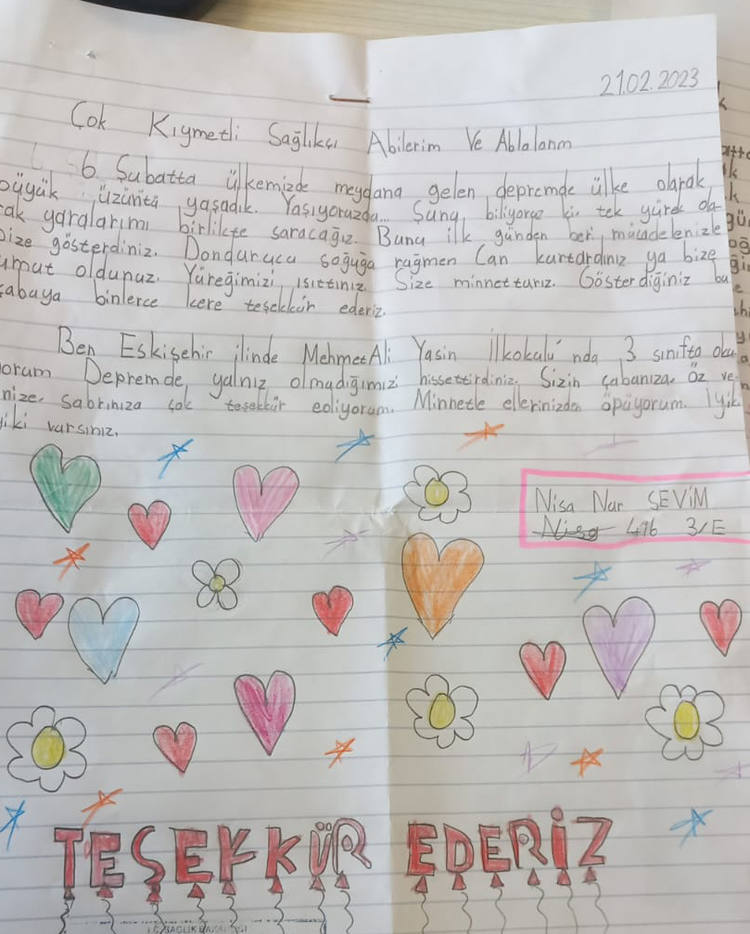 21.02.2023
Çok Kıymetli Sağlıkçı Abilerim Ve Ablalarım
6 Şubatta ülkemizde meydana gelen depremde ülke olarak
büyük üzüntü yaşadık. Yaşıyoruzda... Şunu biliyoruz ki tek yürek ola-
rak yaralarımı birlikte saracağız. Bunu ilk günden beri mücadelenizle
bize gösterdiniz. Dondurucu soğuğa rağmen Can kurtardınız ya bize
umut oldunuz. Yüreğimizi ısıttınız. Size minnettarız. Gösterdiğiniz bu
çabaya binlerce kere teşekkür ederiz.
Ben Eskişehir ilinde Mehmet Ali Yasin İlkokulu'nda 3 sınıfta oku-
yorum Depremde, yalnız olmadığımızı hissettirdiniz. Sizin çabanıza, öz ve-
nize, sabrınıza çok teşekkür ediyorum. Minnetle ellerinizden öpüyorum. İyiki
iyiki varsınız.
Nisa Nur SEVİM
Nisa 416 3/E
TEŞEKKÜR EDERİZ